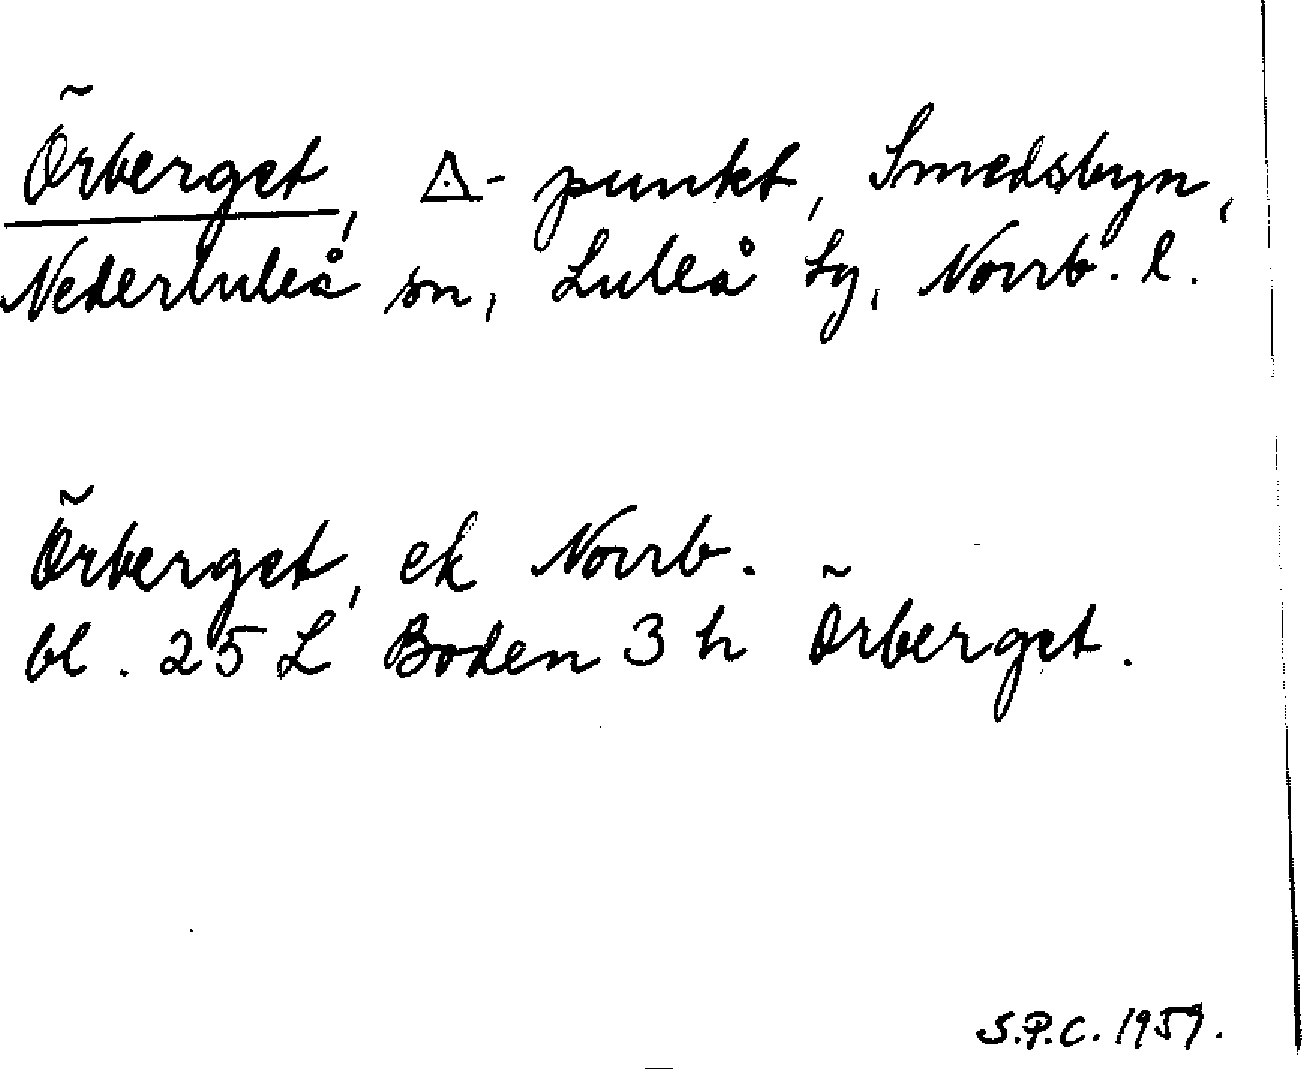 Örberget, △-punkt, Smedsbyn,
Nederluleå sn, Luleå tg, Norrb. l.
Örberget, ek Norrb.
bl. 25 L Boden 3 h Örberget.
S.P.C. 1959.